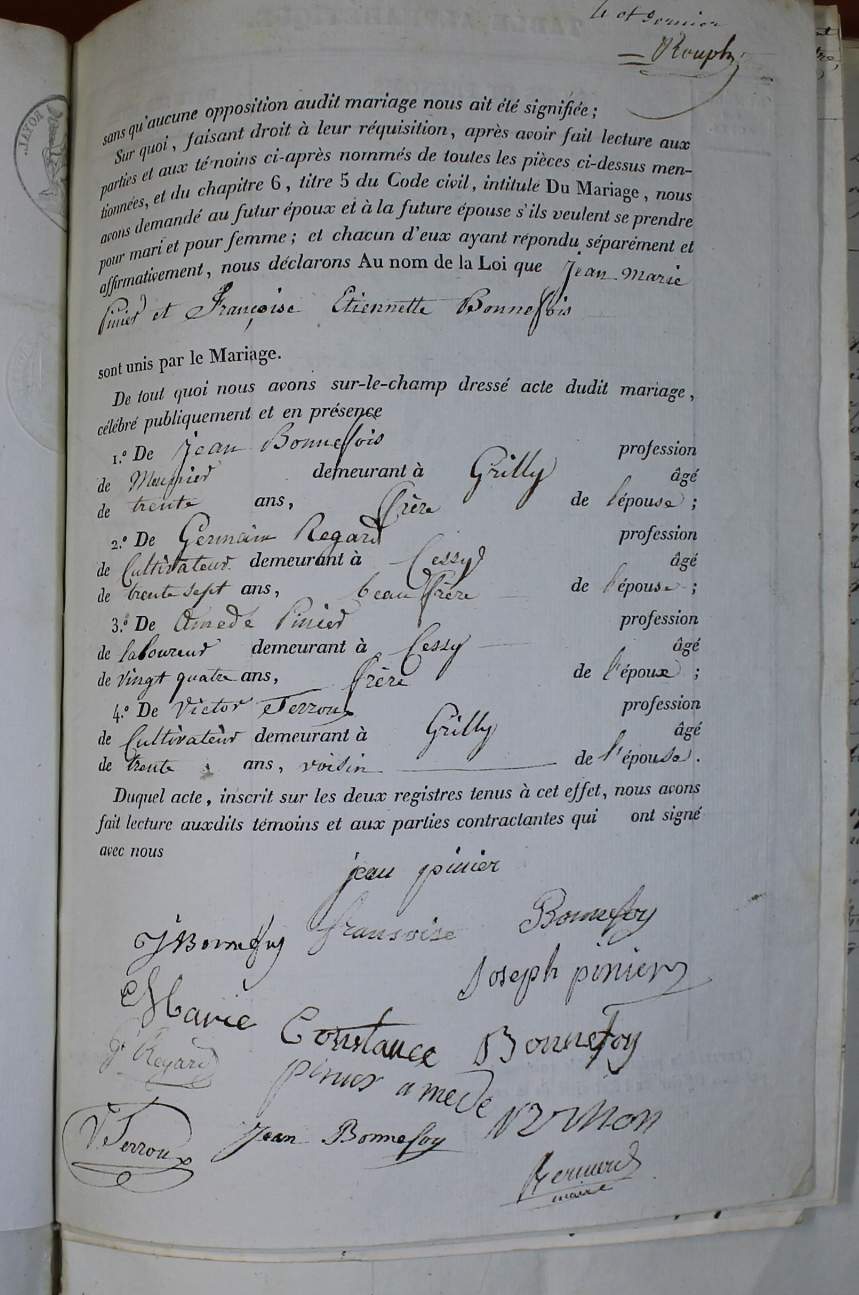 4 et dernier
Rouph
sans qu'aucune opposition audit mariage nous ait été signifiée ;
Sur quoi, faisant droit à leur réquisition, après avoir fait lecture aux
parties et aux témoins ci-après nommés de toutes les pièces ci-dessus men-
tionnées, et du chapitre 6, titre 5 du Code civil, intitulé Du Mariage, nous
avons demandé au futur époux et à la future épouse s'ils veulent se prendre
pour mari et pour femme ; et chacun d'eux ayant répondu séparément et
affirmativement, nous déclarons Au nom de la Loi que Jean Marie
Pinier et Françoise Etiennette Bonnefois
sont unis par le Mariage.
De tout quoi nous avons sur-le-champ dressé acte dudit mariage,
célébré publiquement et en présence
1.º De Jean Bonnefois profession
de Meunier demeurant à Grilly âgé
de trente ans, frère de l'épouse ;
2.º De Germain Regard profession
de Cultivateur demeurant à Cessy âgé
de trente sept ans, beau frère de l'épouse ;
3.º De Amedé Pinier profession
de laboureur demeurant à Cessy âgé
de vingt quatre ans, frère de l'époux ;
4.º De Victor Terroux profession
de Cultivateur demeurant à Grilly âgé
de trente ans, voisin de l'épouse.
Duquel acte, inscrit sur les deux registres tenus à cet effet, nous avons
fait lecture auxdits témoins et aux parties contractantes qui ont signé
avec nous
jean pinier
J Bonnefoy fransoise Bonnefoy
Joseph pinier
Marie Constance Bonnefoy
g Regard pinier amede
V Terroux Jean Bonnefoy
maire